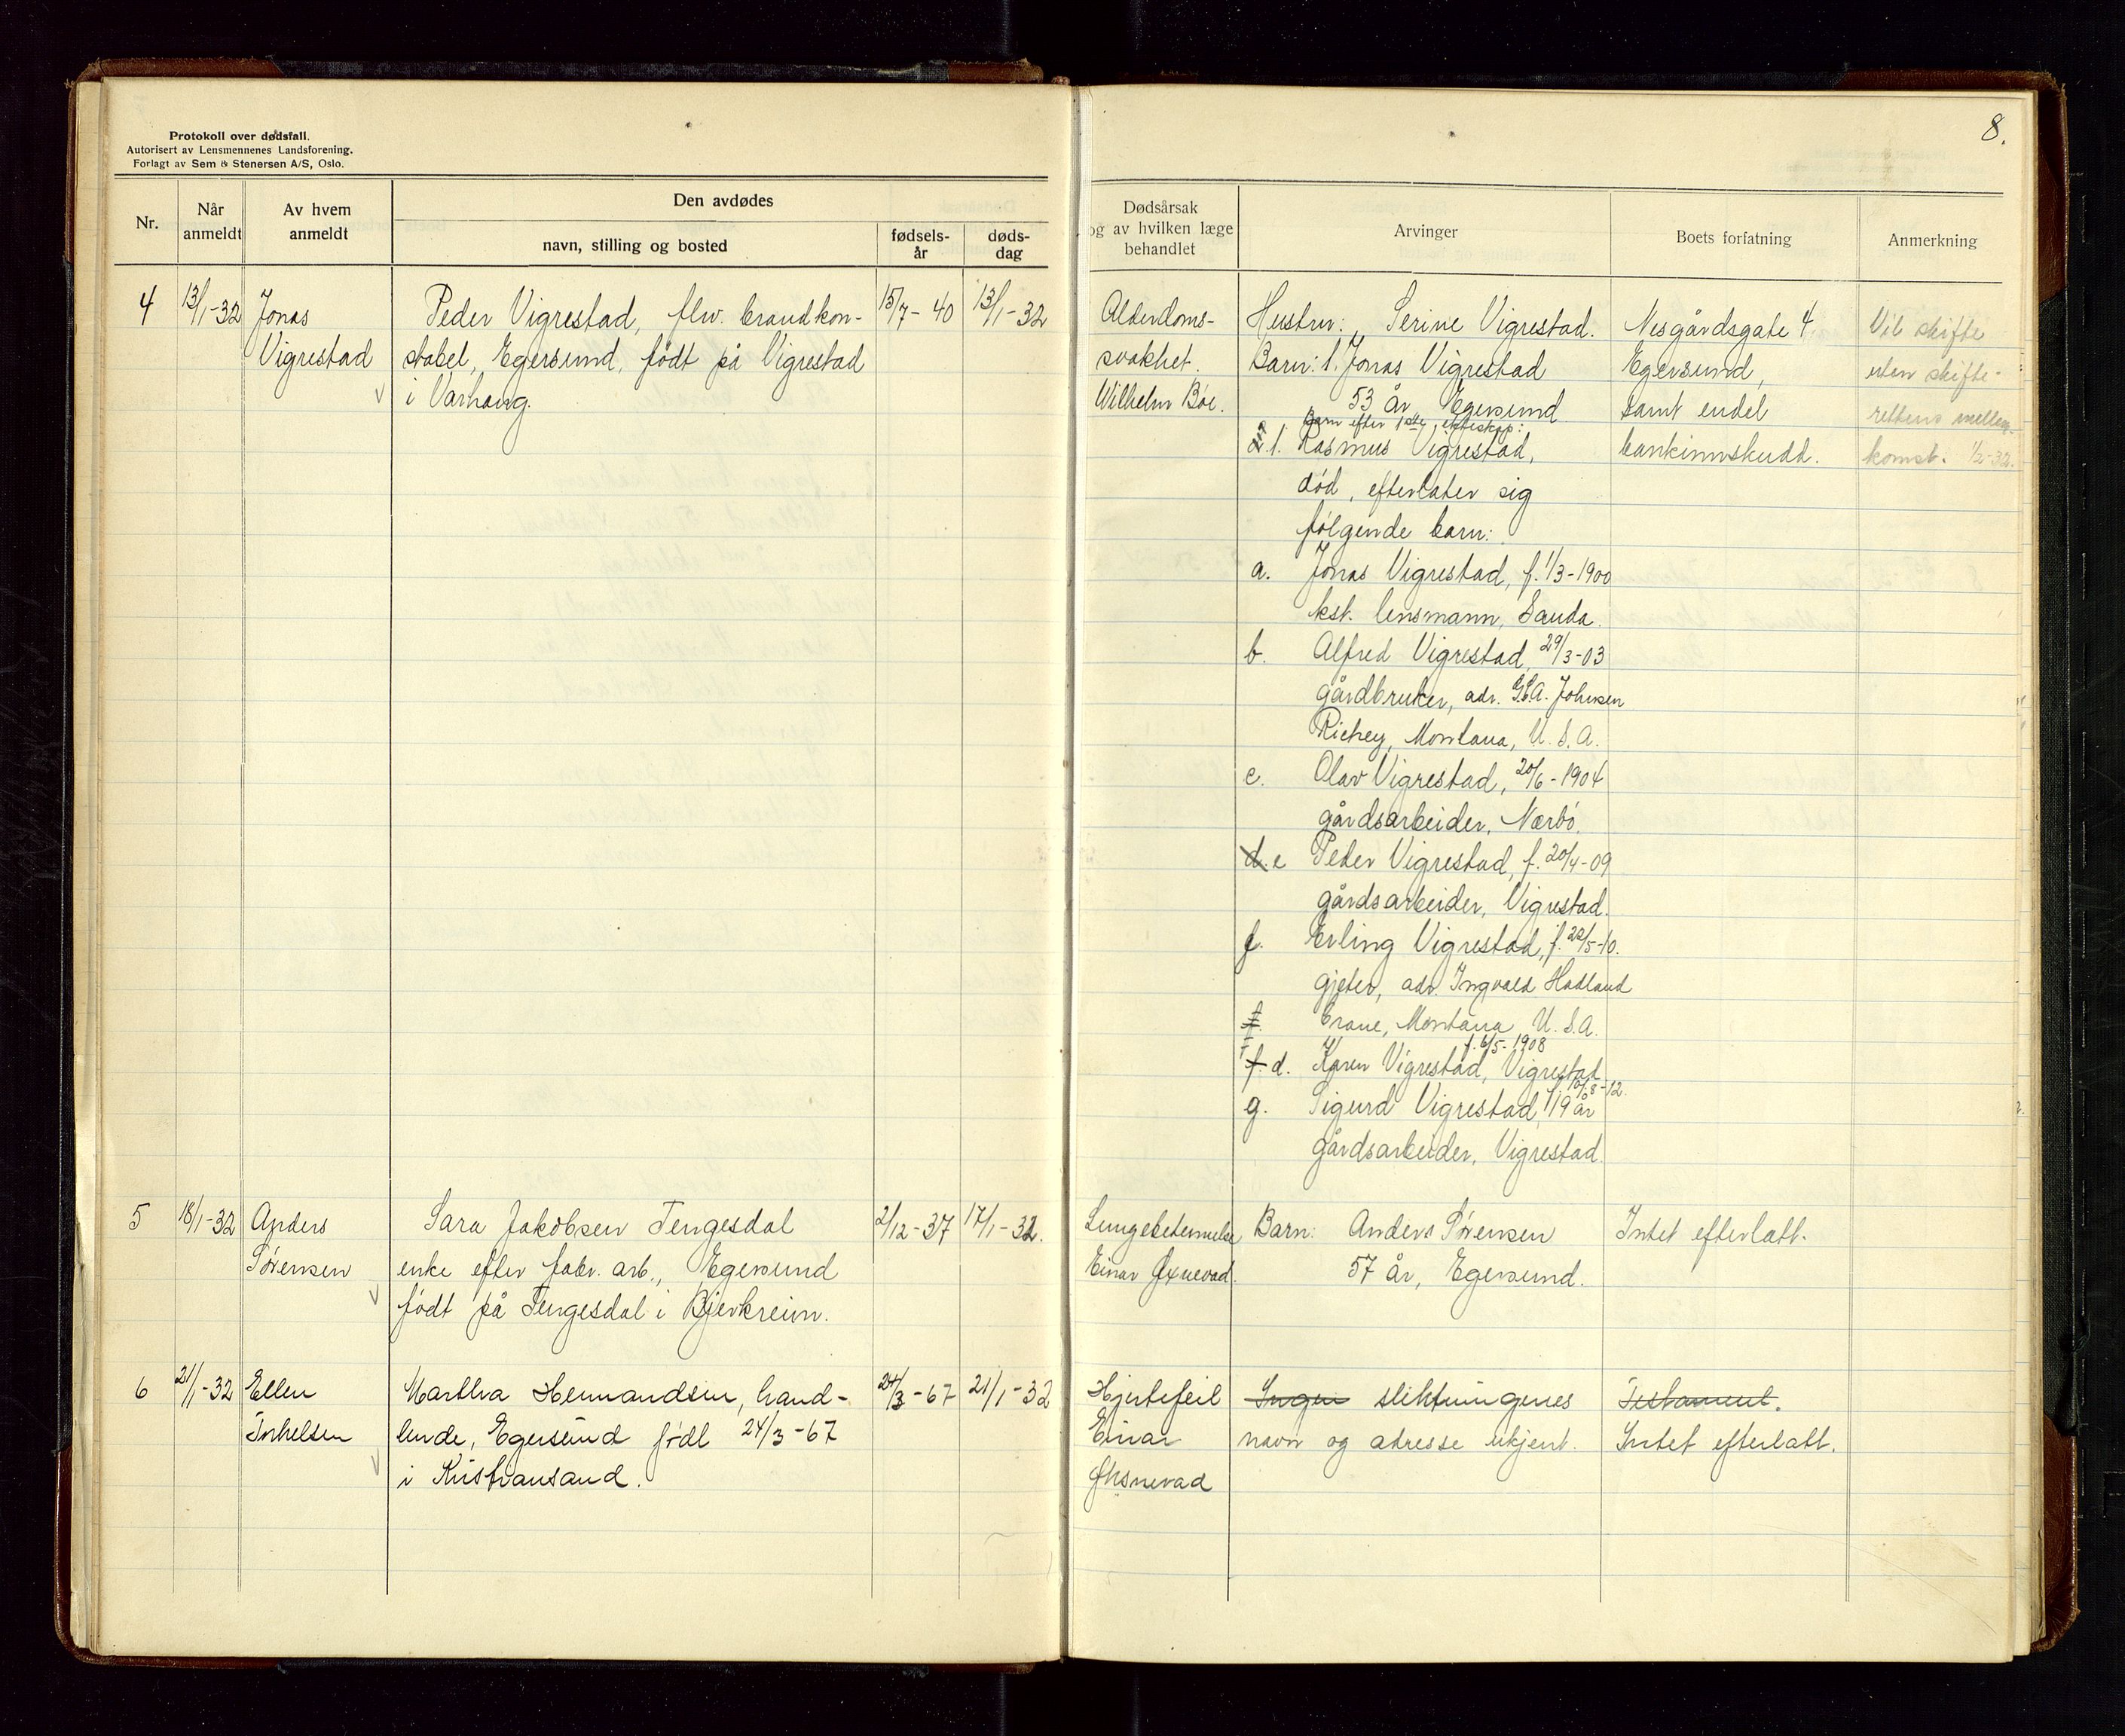 8.
Protokoll over dødsfall.
Autorisert av Lensmennenes Landsforening.
Forlagt av Sem & Stenersen A/S, Oslo.
Nr.
Når anmeldt
Av hvem anmeldt
Den avdødes
navn, stilling og bosted
fødsels-år
døds-dag
Dødsårsak og av hvilken læge behandlet
Arvinger
Boets forfatning
Anmerkning
4
13/1-32
Jonas
Vigrestad
Peder Vigrestad, flv. brandkon-
stabel, Egersund, født på Vigrestad
i Varhaug.
15/7-40
13/1-32
Alderdoms-
svakhet.
Wilhelm Böe.
Hustru: Serine Vigrestad.
Barn: 1. Jonas Vigrestad
53 år, Egersund
Barn efter 1ste ekteskap:
1. Rasmus Vigrestad,
död, efterlater sig
følgende barn:
a. Jonas Vigrestad, f. 1/3-1900
kst. lensmann, Sauda.
b. Alfred Vigrestad, 29/3-03
gårdbruker, adr. Johnsen
Richey, Montana, U.S.A.
c. Olav Vigrestad, 20/6-1904
gårdsarbeider, Nærbö.
d. e Peder Vigrestad, f. 20/4-09
gårdsarbeider, Vigrestad.
f. Erling Vigrestad, f. 22/5-10.
gjeter, adr. Ingvald Hadland
f. Crane, Montana, U.S.A.
f. 6/5-1908
f. d. Karen Vigrestad, Vigrestad
f. 10/8-12.
g. Sigurd Vigrestad, 19 år
gårdsarbeider, Vigrestad.
Nesgårdsgate 4
Egersund,
samt endel
bankinnskudd.
Vil skifte
uten skifte-
rettens mellem-
komst. 1/2-32.
5
18/1-32
Anders
Sörensen
Sara Jakobsen Tengesdal
enke efter fabr. arb., Egersund
född på Tengesdal i Bjerkreim.
2/12-37
17/1-32.
Lungebetennelse
Einar Øxnevad.
Barn: Anders Sørensen
57 år, Egersund.
Intet efterlatt.
6
21/1-32
Ellen
Torkelsen
Martha Hermandsen, hand-
lende, Egersund född 24/3-67
i Kristiansand.
24/3-67
21/1-32
Hjertefeil
Einar
Øksnevad
Ingen slektningenes
navn og adresse ukjent.
Testament.
Intet efterlatt.